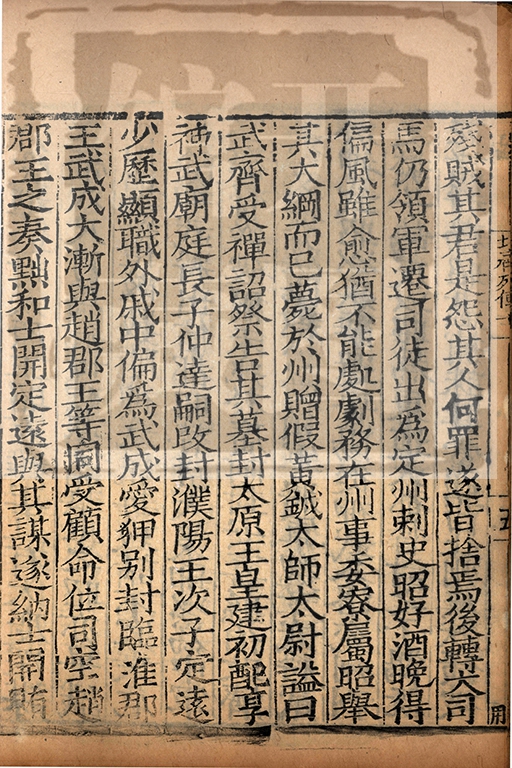 殘賊其君是怨其人何罪遂皆捨焉後轉大司
馬仍領軍遷司徒出為定州刺史昭好酒晚得
偏風雖愈猶不能處劇務在州事委寮屬昭舉
其大綱而已薨於州贈假黃鉞太師太尉謚曰
武齊受禪詔祭告其墓封太原王皇建初配享
神武廟庭長子仲達嗣改封濮陽王次子定遠
少歷顯職外戚中偏為武成愛狎别封臨淮郡
王武成大漸與趙郡王等同受顧命位司空趙
郡王之奏黜和士開定遠與其謀遂納士開賄
用